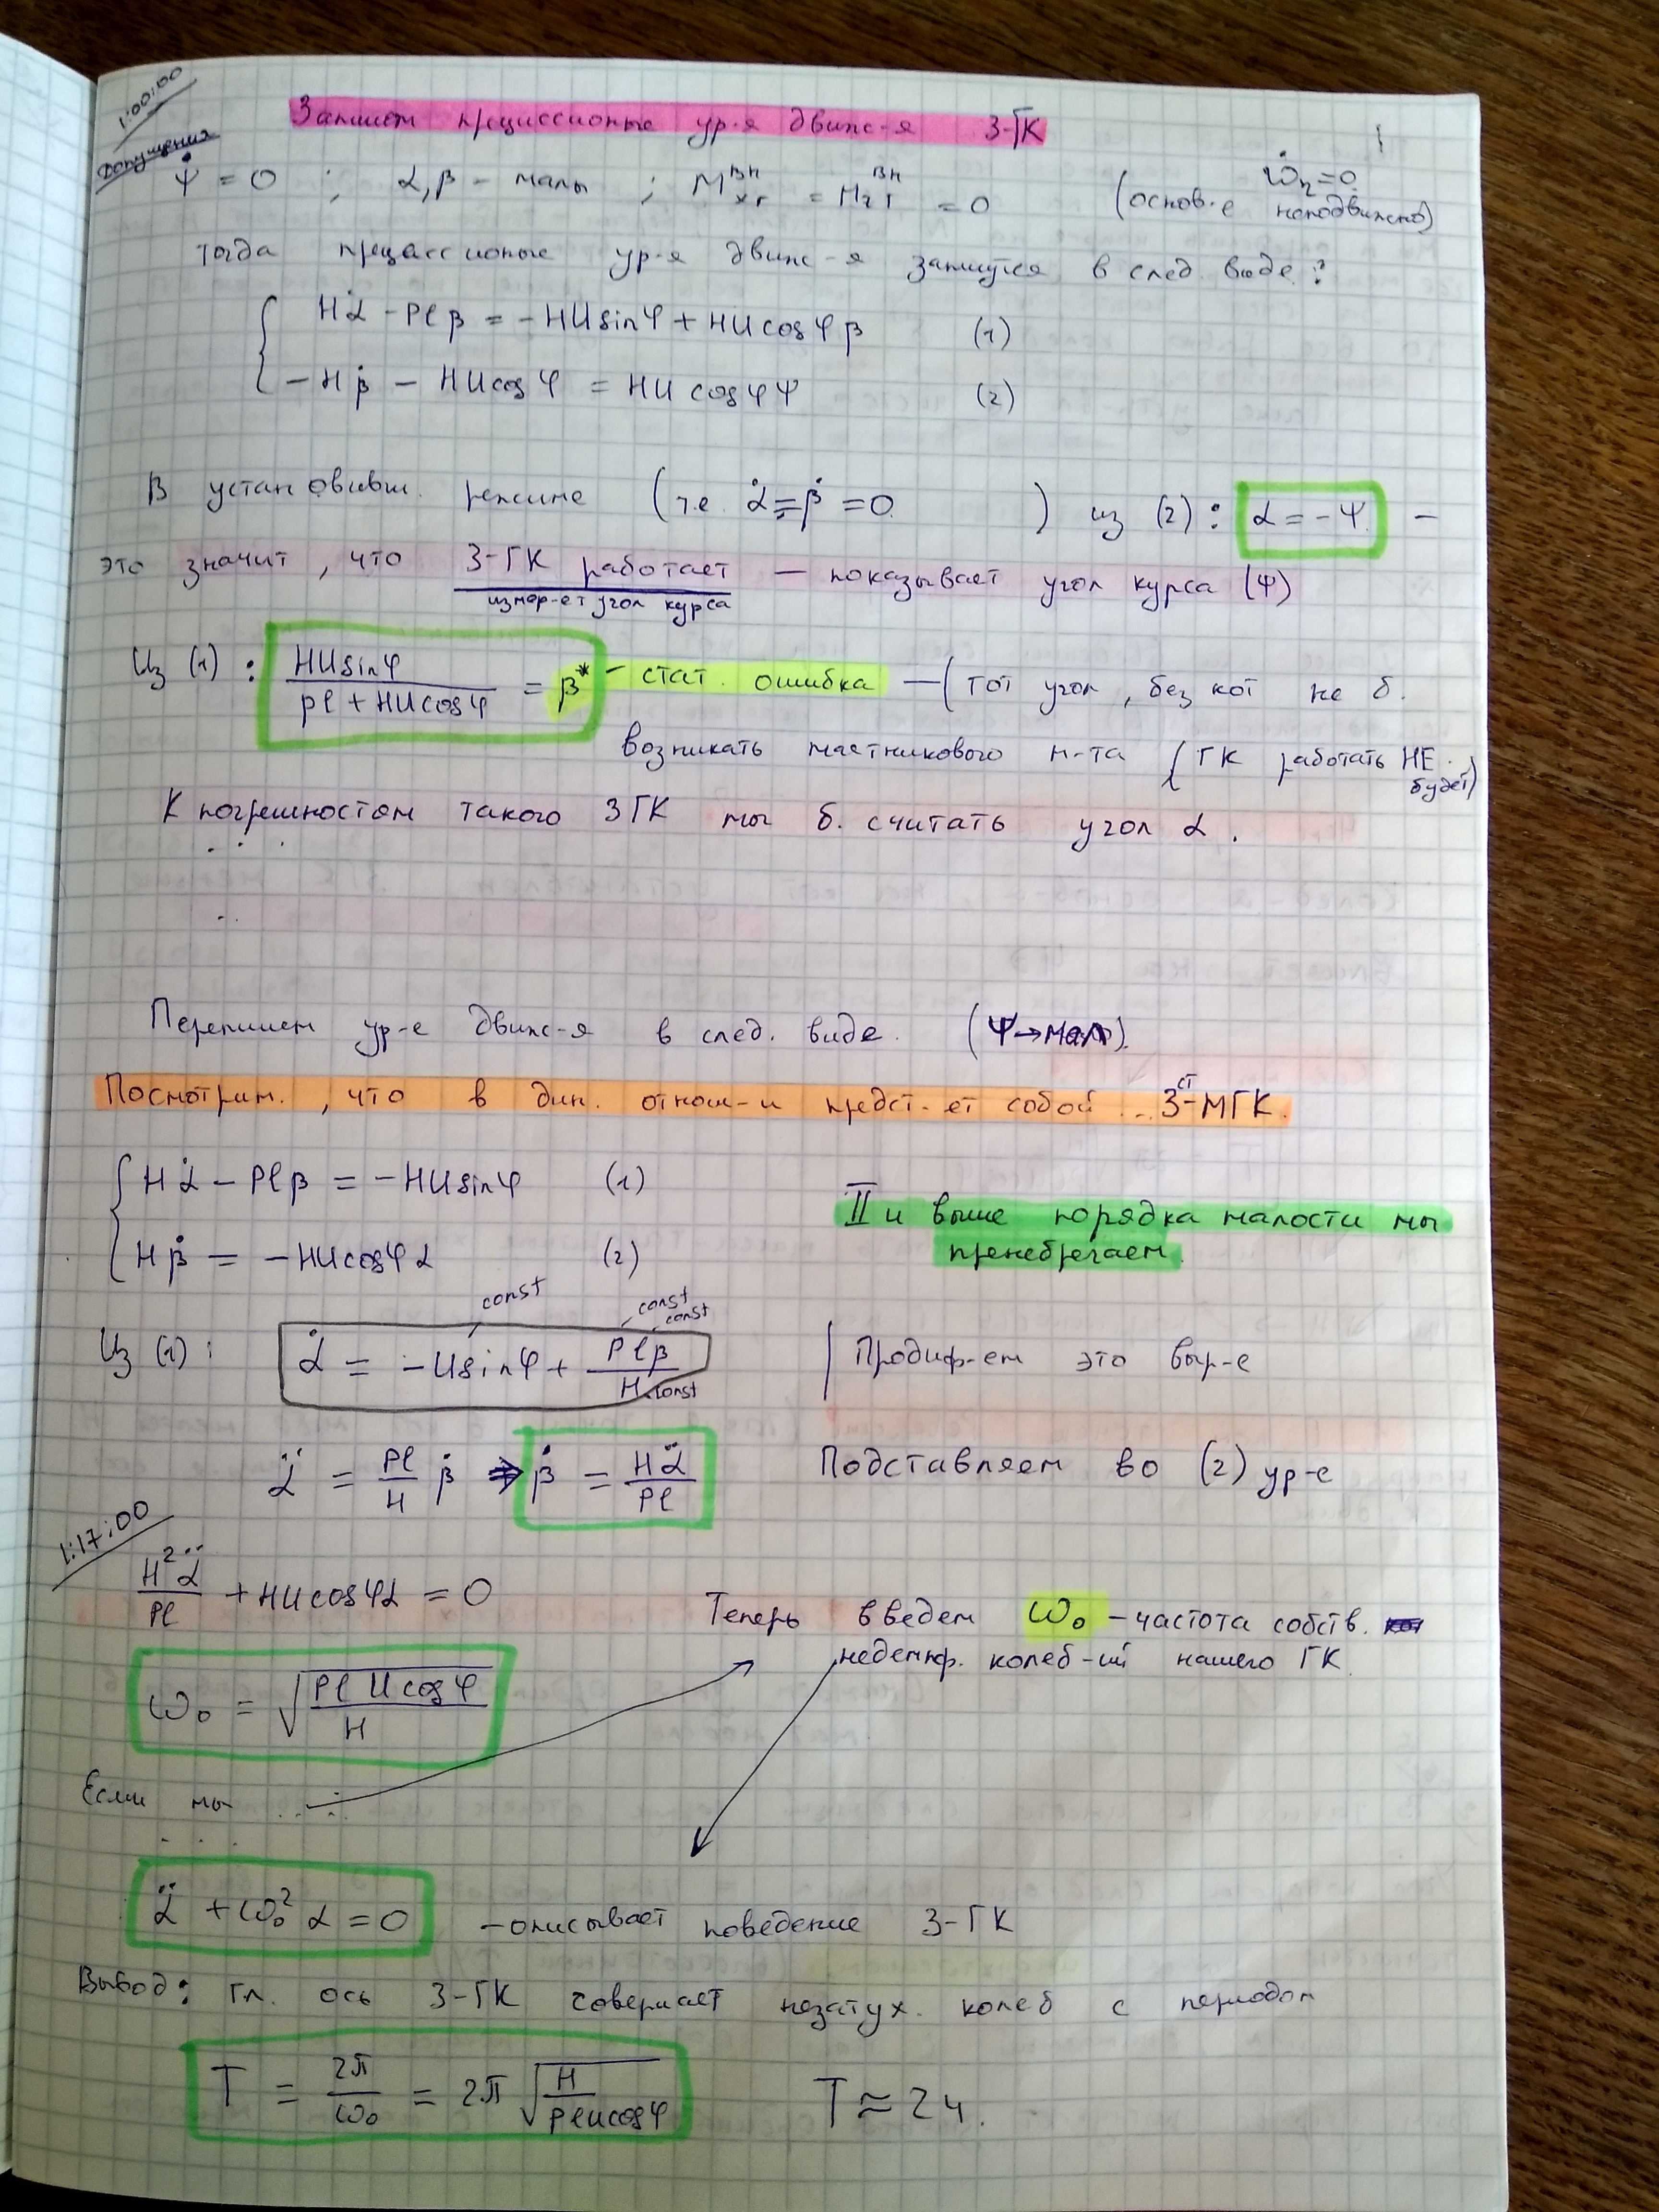 1:00:00
Допущения
Запишем прецессионые ур-я движ-я 3-ГК
Ψ̇ = 0 ; α, β – малы ; M вн xг = Hzг вн = 0 (основ-е неподвижно) ω̇η = 0
Тогда прецессионые ур-я движ-я запишутся в след. виде:
Hα̇ - Plβ = -HUsinφ + HUcosφβ (1)
- Hβ̇ - HUcosφ = HUcosφΨ (2)
В установивш. режиме (т.е. α̇ = β̇ = 0 ) из (2): α = -Ψ –
это значит, что 3-ГК работает – показывает угол курса (Ψ)
измер-ет угол курса
Из (1): HUsinφ / (pl + HUcosφ) = β* – стат. ошибка – (тот угол, без кот не б.
возникать маятникового м-та (ГК работать НЕ будет)
К погрешностям такого 3ГК мы б. считать угол α.
Перепишем ур-е движ-я в след. виде. (Ψ → мал).
Посмотрим, что в дин. отнош-и предст-ет собой ... 3-ст МГК.
Hα̇ - Plβ = -HUsinφ (1)
Hβ̇ = -HUcosφα (2)
II и выше порядка малости мы
пренебрегаем.
Из (1): α̇ = -Usinφ + Plβ / H | Продиф-ем это выр-е
const const const const
α̈ = Pl/H β̇ ⇒ β̇ = Hα̈ / Pl Подставляем во (2) ур-е
1:17:00
H²α̈ / Pl + HUcosφα = 0 Теперь введем ω₀ – частота собств.
недемпф. колеб-ий нашего ГК.
ω₀ = √(Pl Ucosφ / H)
Если мы ...
α̈ + ω₀²α = 0 – описывает поведение 3-ГК
Вывод: гл. ось 3-ГК совершает незатух. колеб с периодом
T = 2π/ω₀ = 2π √(H / Plucosφ) T ≈ 2ч.